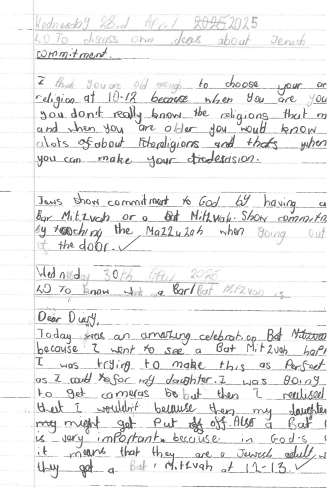 Wednesday 28rd April 2025 2025
LO To discuss own ideas about Jewish
commitment.
I think you are old enough to choose your
religion at 10-12 because when you are
you don't really know the religions that
and when you are older you would know
alots of about and thats when
you can make your
Jews show commitment to God by having a
Bar Mitzvah or a Bat Mitzvah. Show
by touching the Mazzuzah when going out
of the door.
Wednesday 30th April 2025
LO To know what a Bar/Bat Mitzvah is
Dear Diary,
Today was an amazing celebration Bat
because I went to see a Bat Mitzvah
I was trying to make this as Perfect
as I could for my daughter. I was going
to get cameras but then I realised
that I wouldn't because then my daughter
my might get Put off off. Also a Bat
is very important because in God's
it means that they are a Jewish adult
they got a Bat Mitzvah at 12-13.